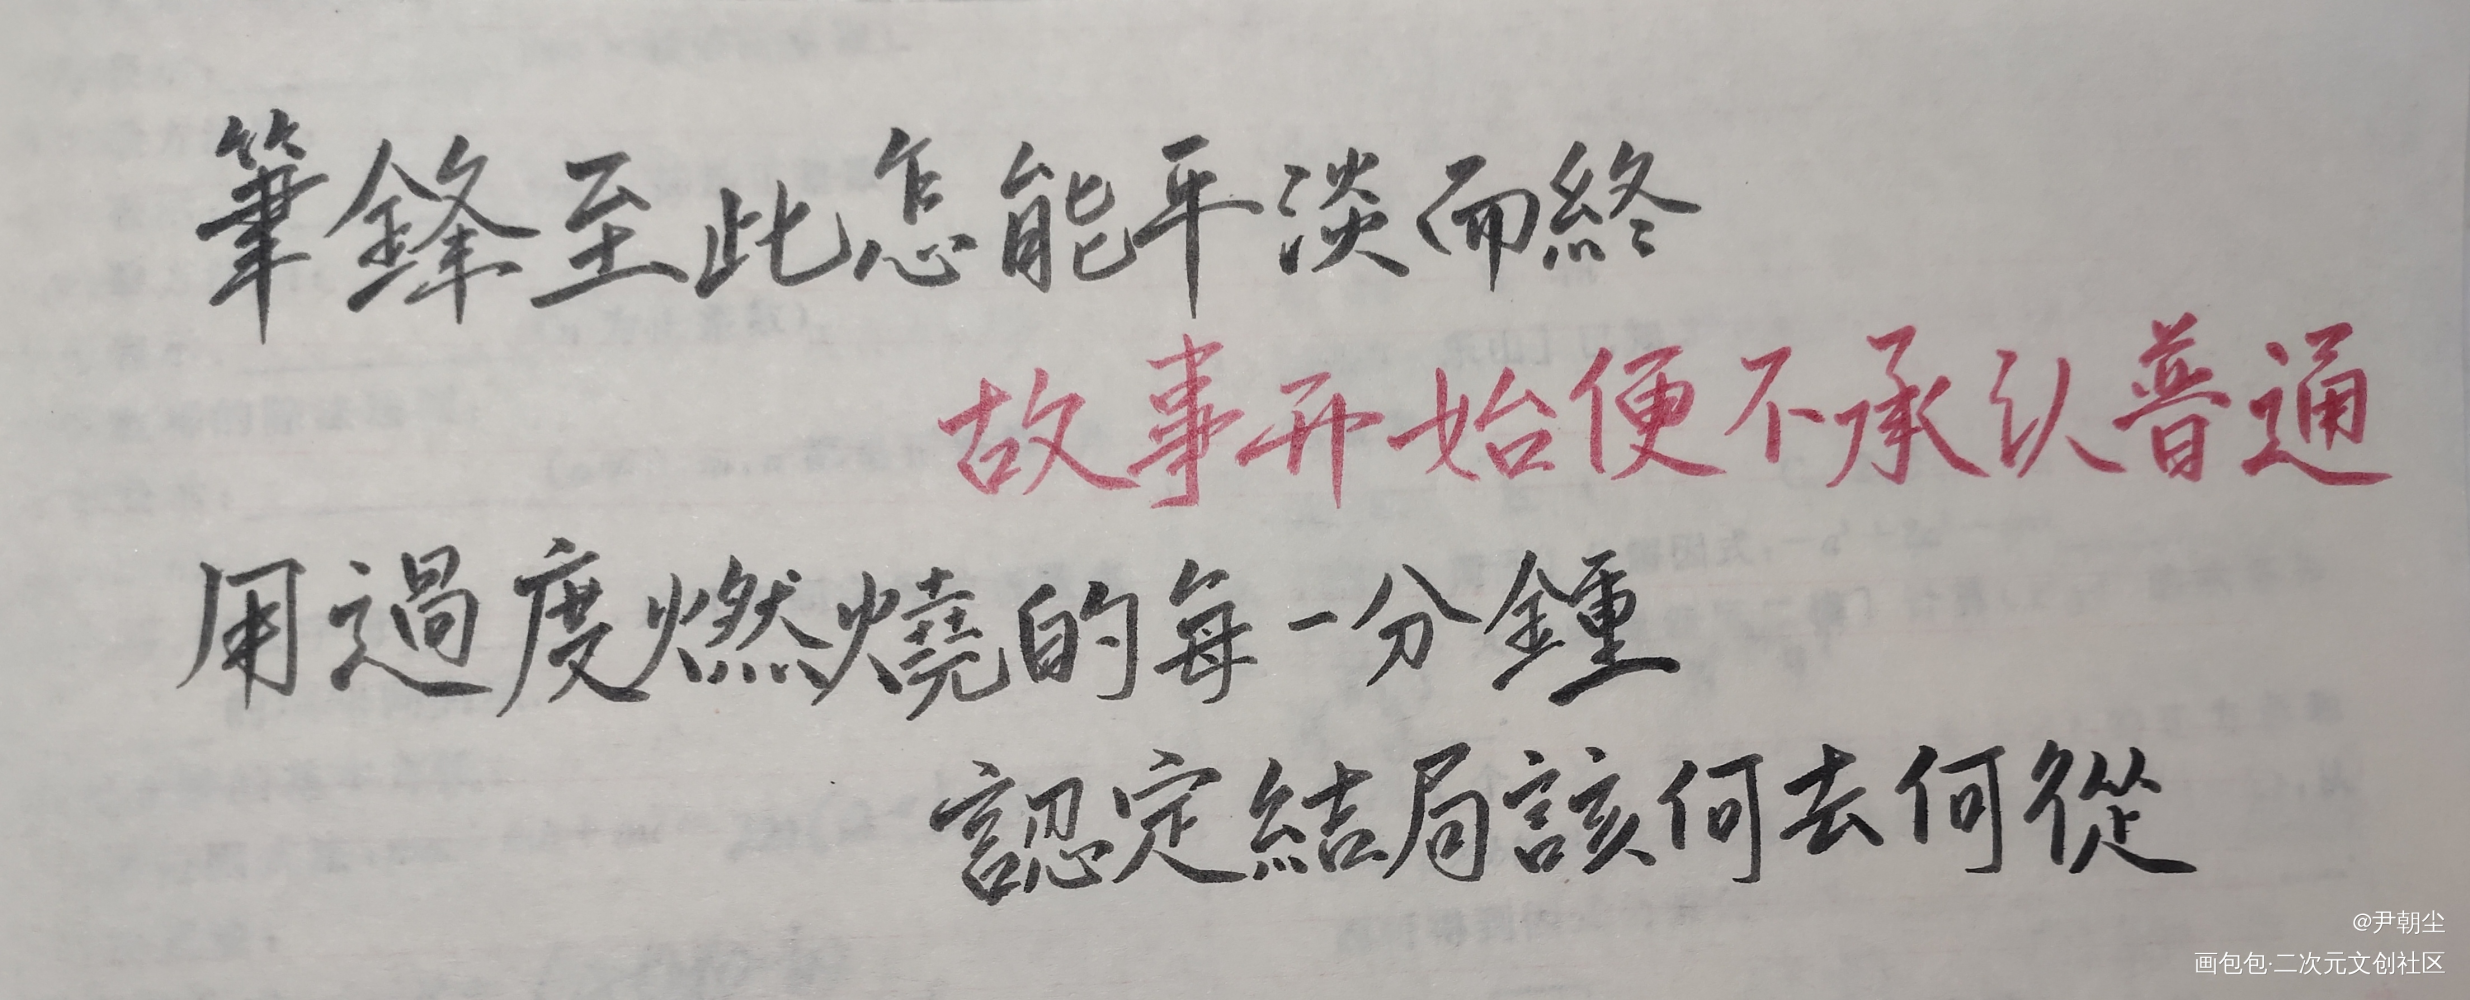 筆鋒至此怎能平淡而終
故事开始便不承认普通
用過度燃燒的每一分鍾
認定結局該何去何從
@尹朝尘
画包包·二次元文创社区